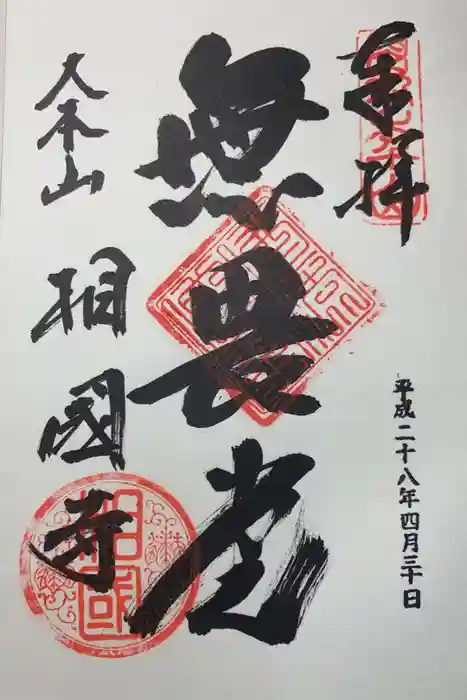 奉拝
平成二十八年四月三十日
無畏堂
大本山
相國寺
相國